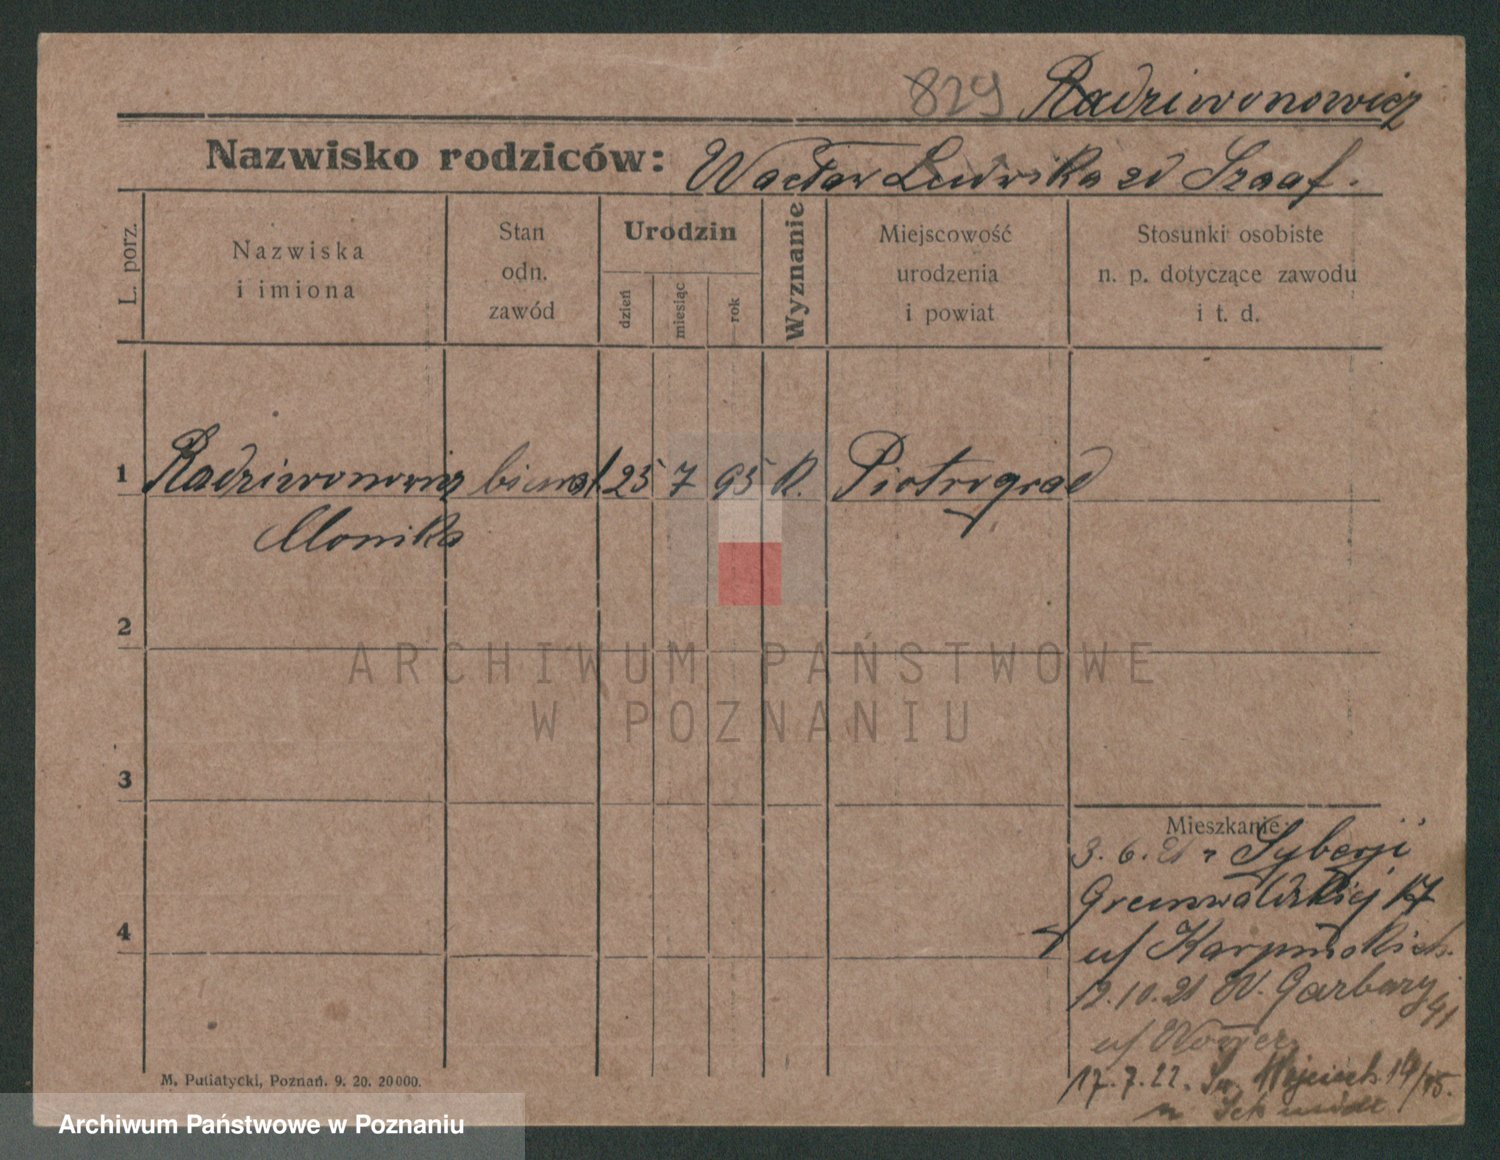 829 Radziwonowicz
Nazwisko rodziców: Wacław Ludwika zd Szaaf.
L. porz.
Nazwiska
i imiona
Stan
odn.
zawód
Urodzin
dzień
miesiąc
rok
Wyznanie
Miejscowość
urodzenia
i powiat
Stosunki osobiste
n. p. dotyczące zawodu
i t. d.
1 Radziwonowicz 25 7 95 R. Piotrograd
Monika
ARCHIWUM PAŃSTWOWE
W POZNANIU
2
3
4
Mieszkanie:
3. 6. 21 z Syberji
Grunwaldzkiej 17
u/ Karpińskich.
12. 10. 21 W. Garbary 41
u/
17. 7. 22. Św. Wojciech
M. Putiatycki, Poznań. 9. 20. 20000.
Archiwum Państwowe w Poznaniu